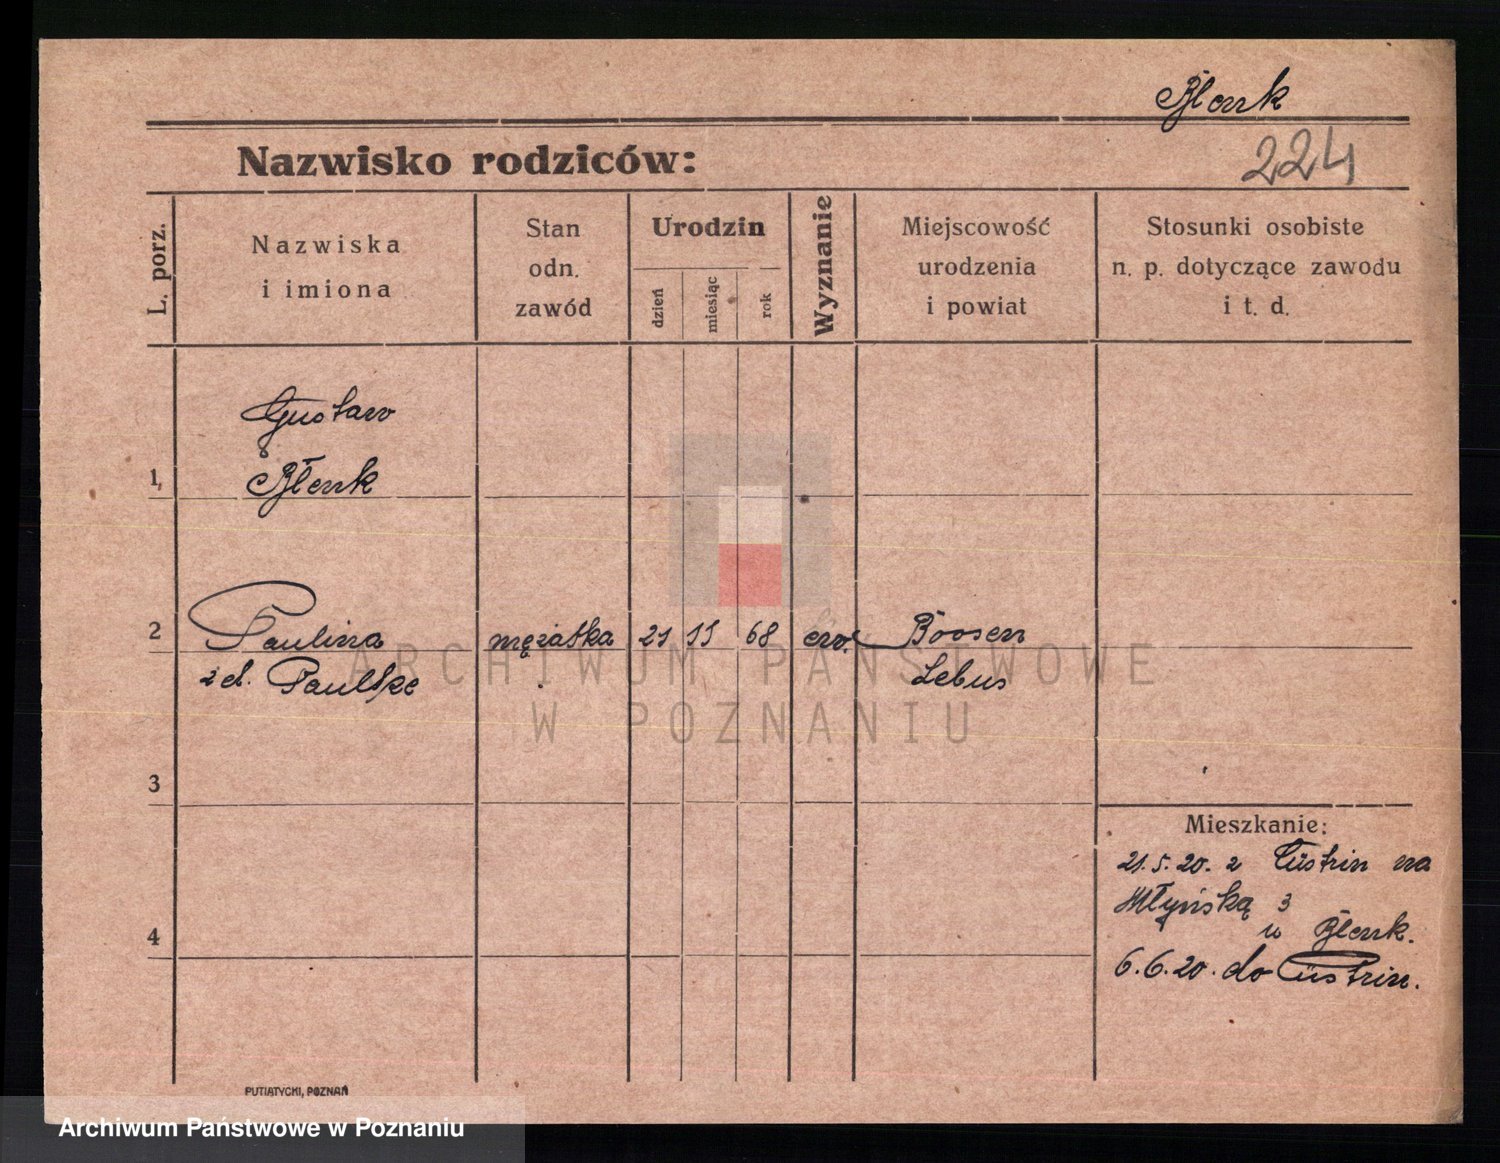 Blenk
Nazwisko rodziców:
224
L. porz.
Nazwiska
i imiona
Stan
odn.
zawód
Urodzin
dzień
miesiąc
rok
Wyznanie
Miejscowość
urodzenia
i powiat
Stosunki osobiste
n. p. dotyczące zawodu
i t. d.
Gustaw
1, Blenk
2 Paulina mężatka 21 11 68 ew. Boosen
z d. Paultke Lebus
ARCHIWUM PAŃSTWOWE
W POZNANIU
3
Mieszkanie:
21.5.20. z Cüstrin na
Młyńską 3
u Blenk.
4
6.6.20. do Cüstrin.
PUTIATYCKI, POZNAŃ
Archiwum Państwowe w Poznaniu